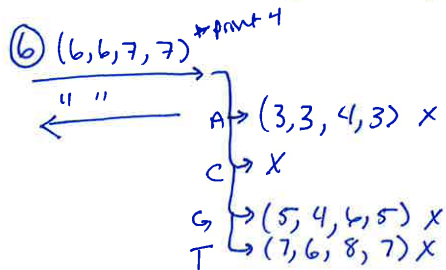 ⑥ (6,6,7,7) *print 4
" "
A → (3,3,4,3) X
C → X
G → (5,4,6,5) X
T → (7,6,8,7) X